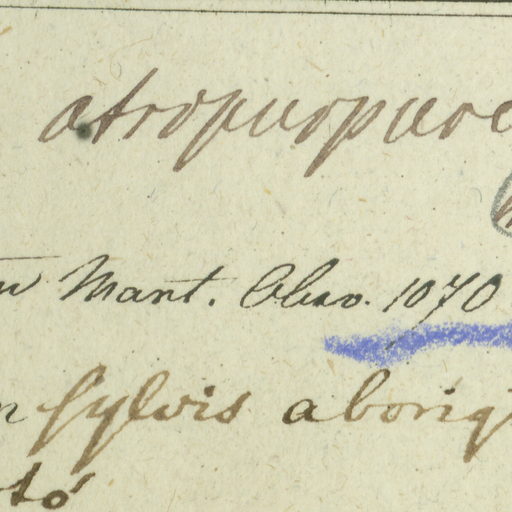 atropurpure
Mant. Obsv. 1070
sylvis aborig